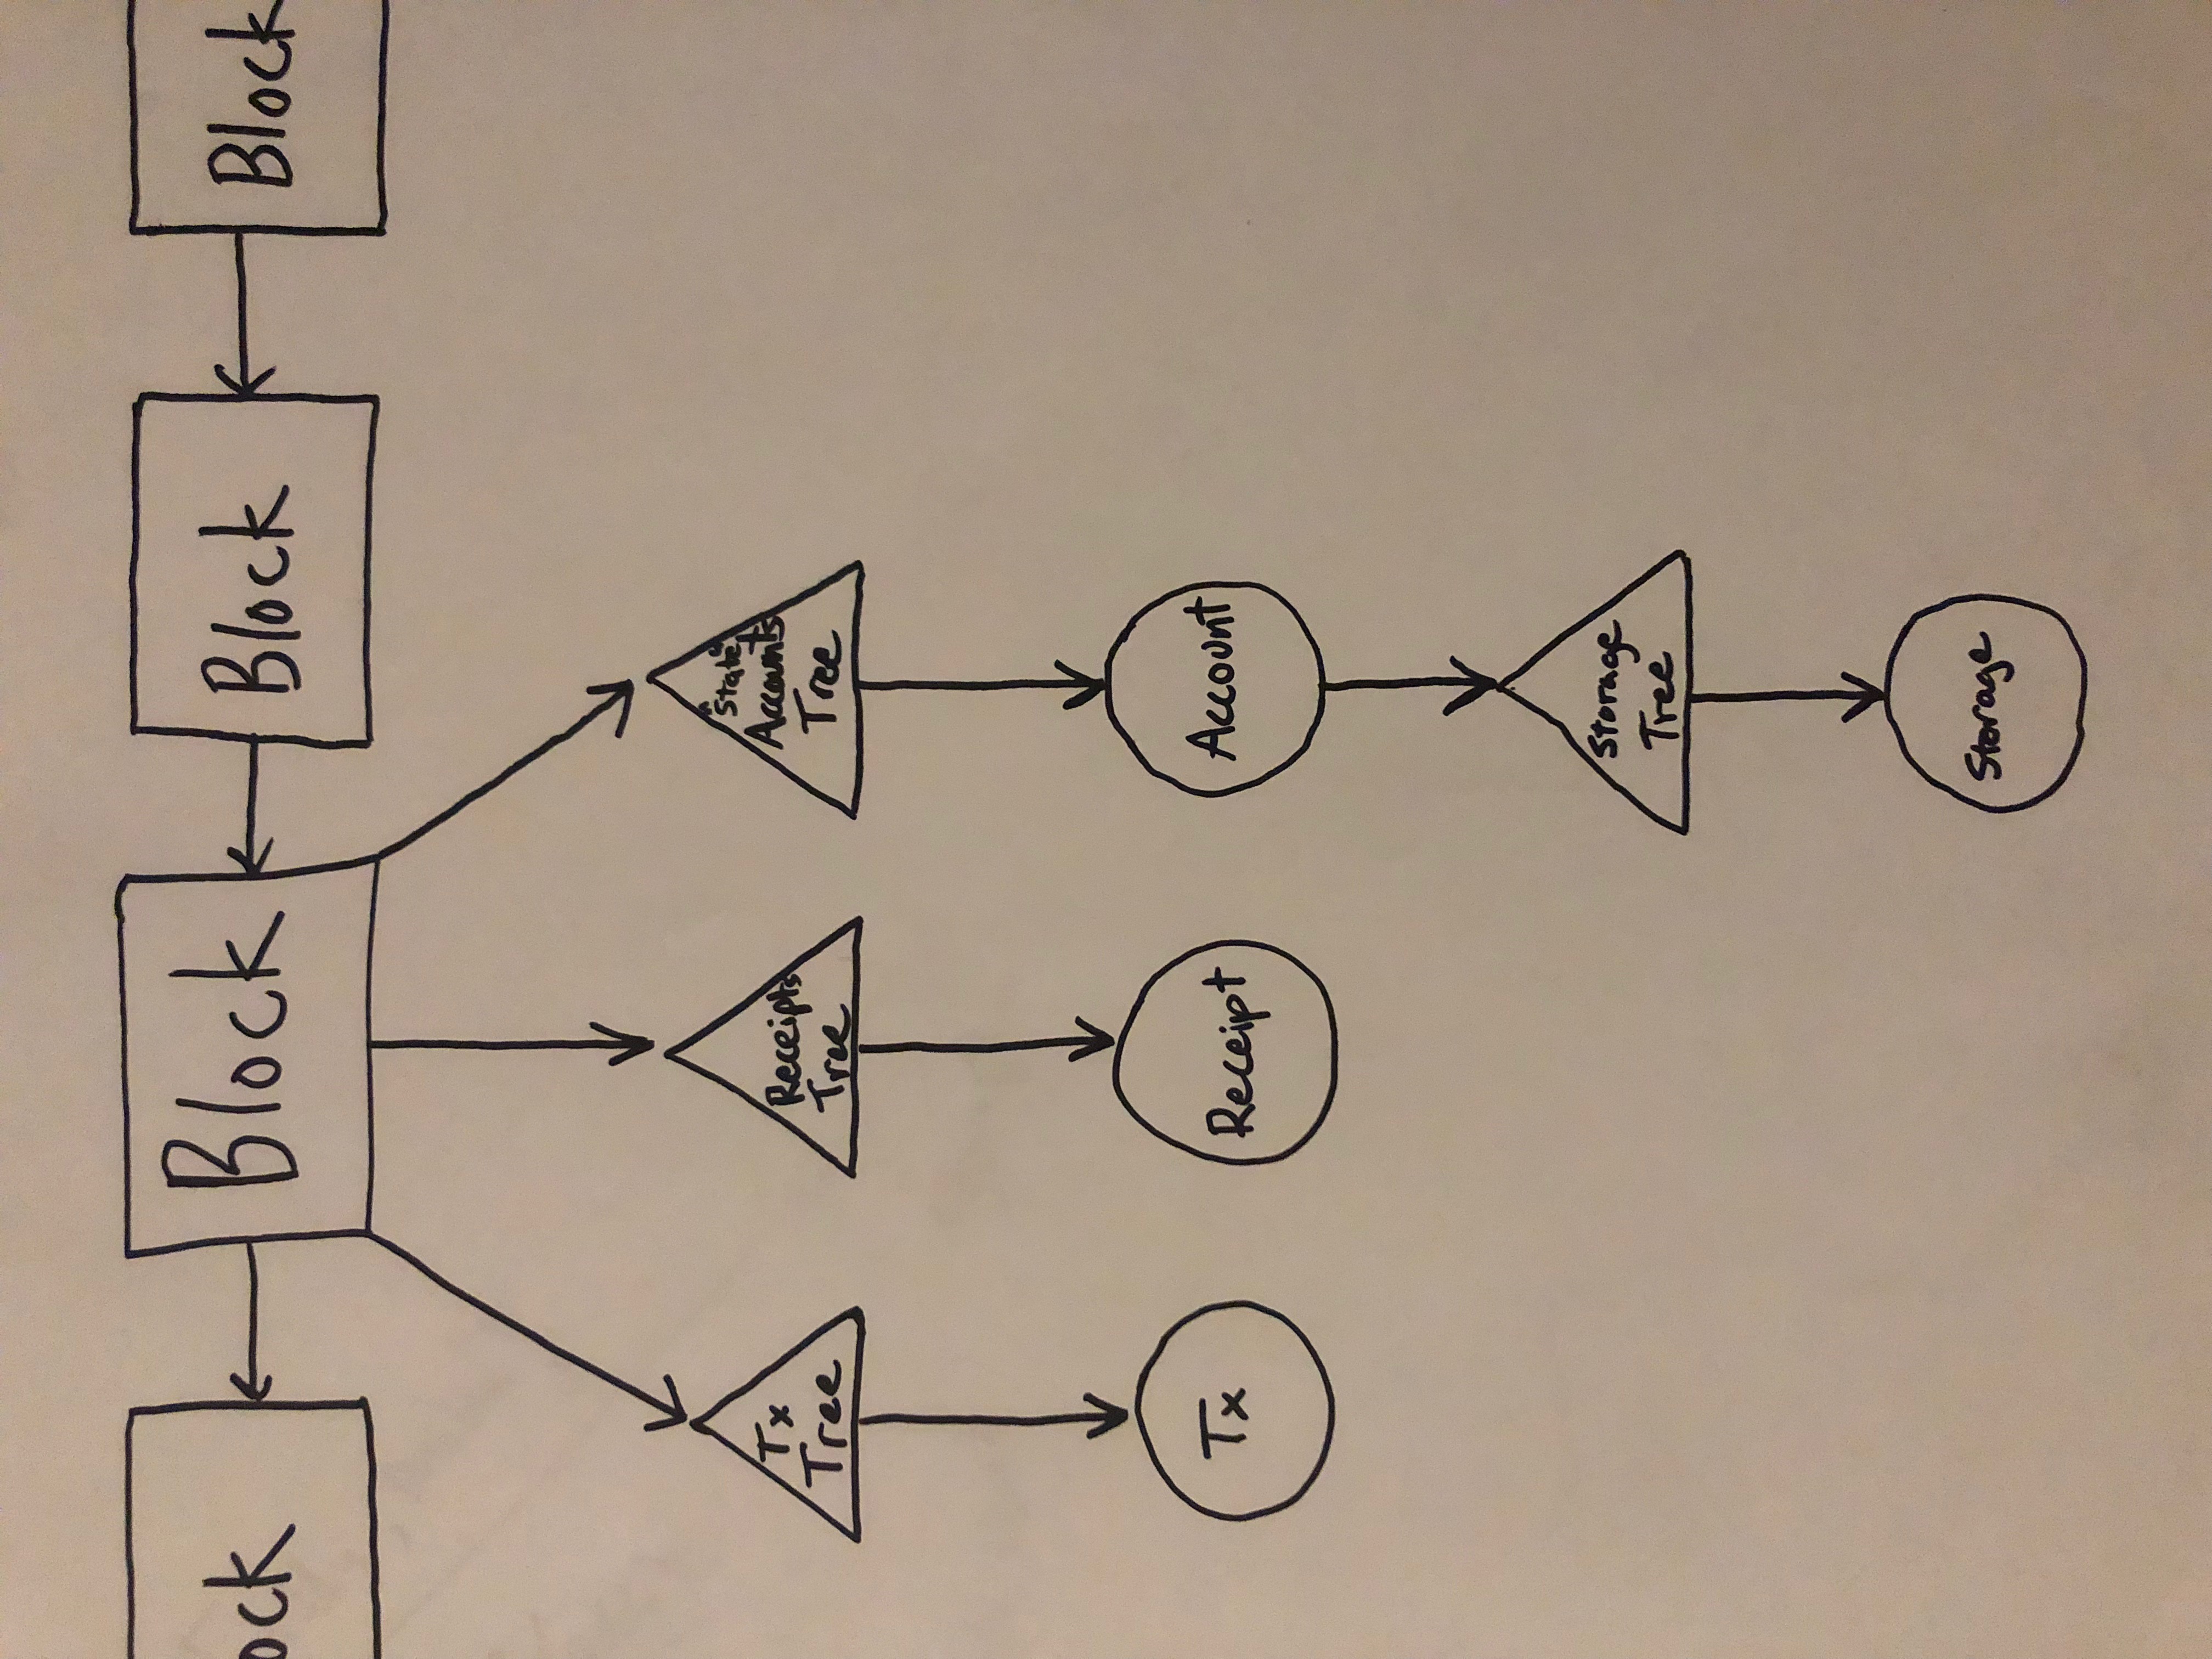 ock
Block
Block
Block
Tx
Tree
Receipts
Tree
"State"
Accounts
Tree
Tx
Receipt
Account
Storage
Tree
Storage